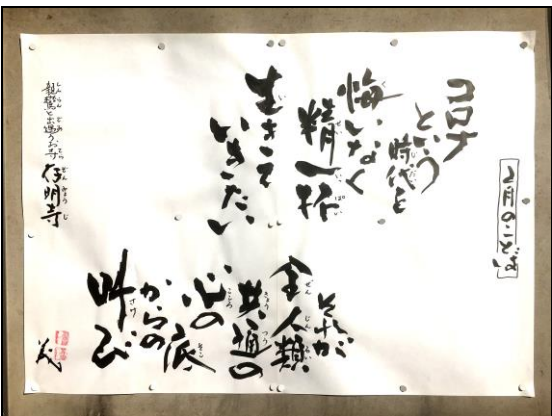 月のことば
コロナ
という
時代を
悔いなく
精一杯
生きて
いきたい
それが
全人類
共通の
心の底
からの
叫び
親鸞と出遇うお寺 存明寺